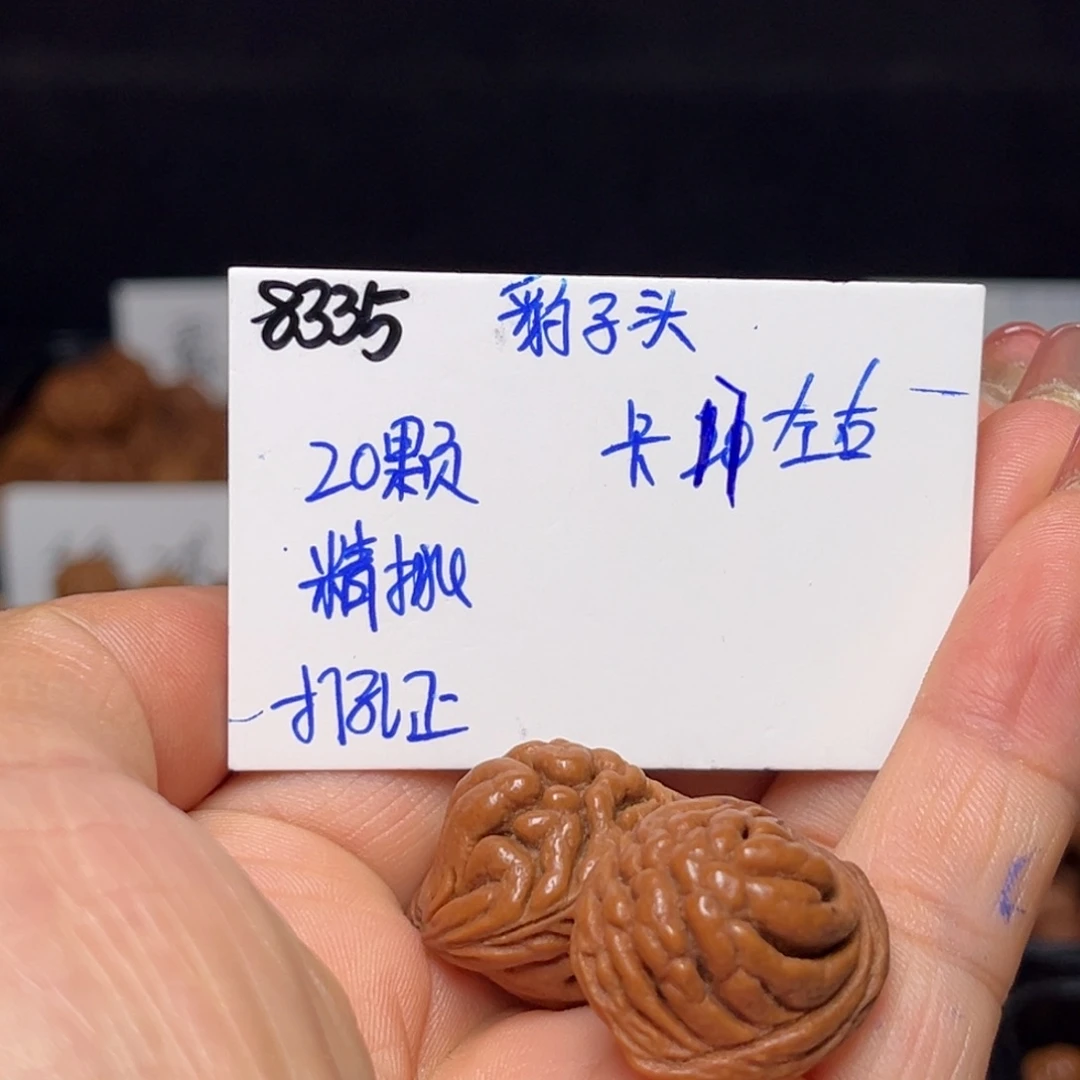 8335 豹子头
卡 左右
20颗
精挑
打孔正